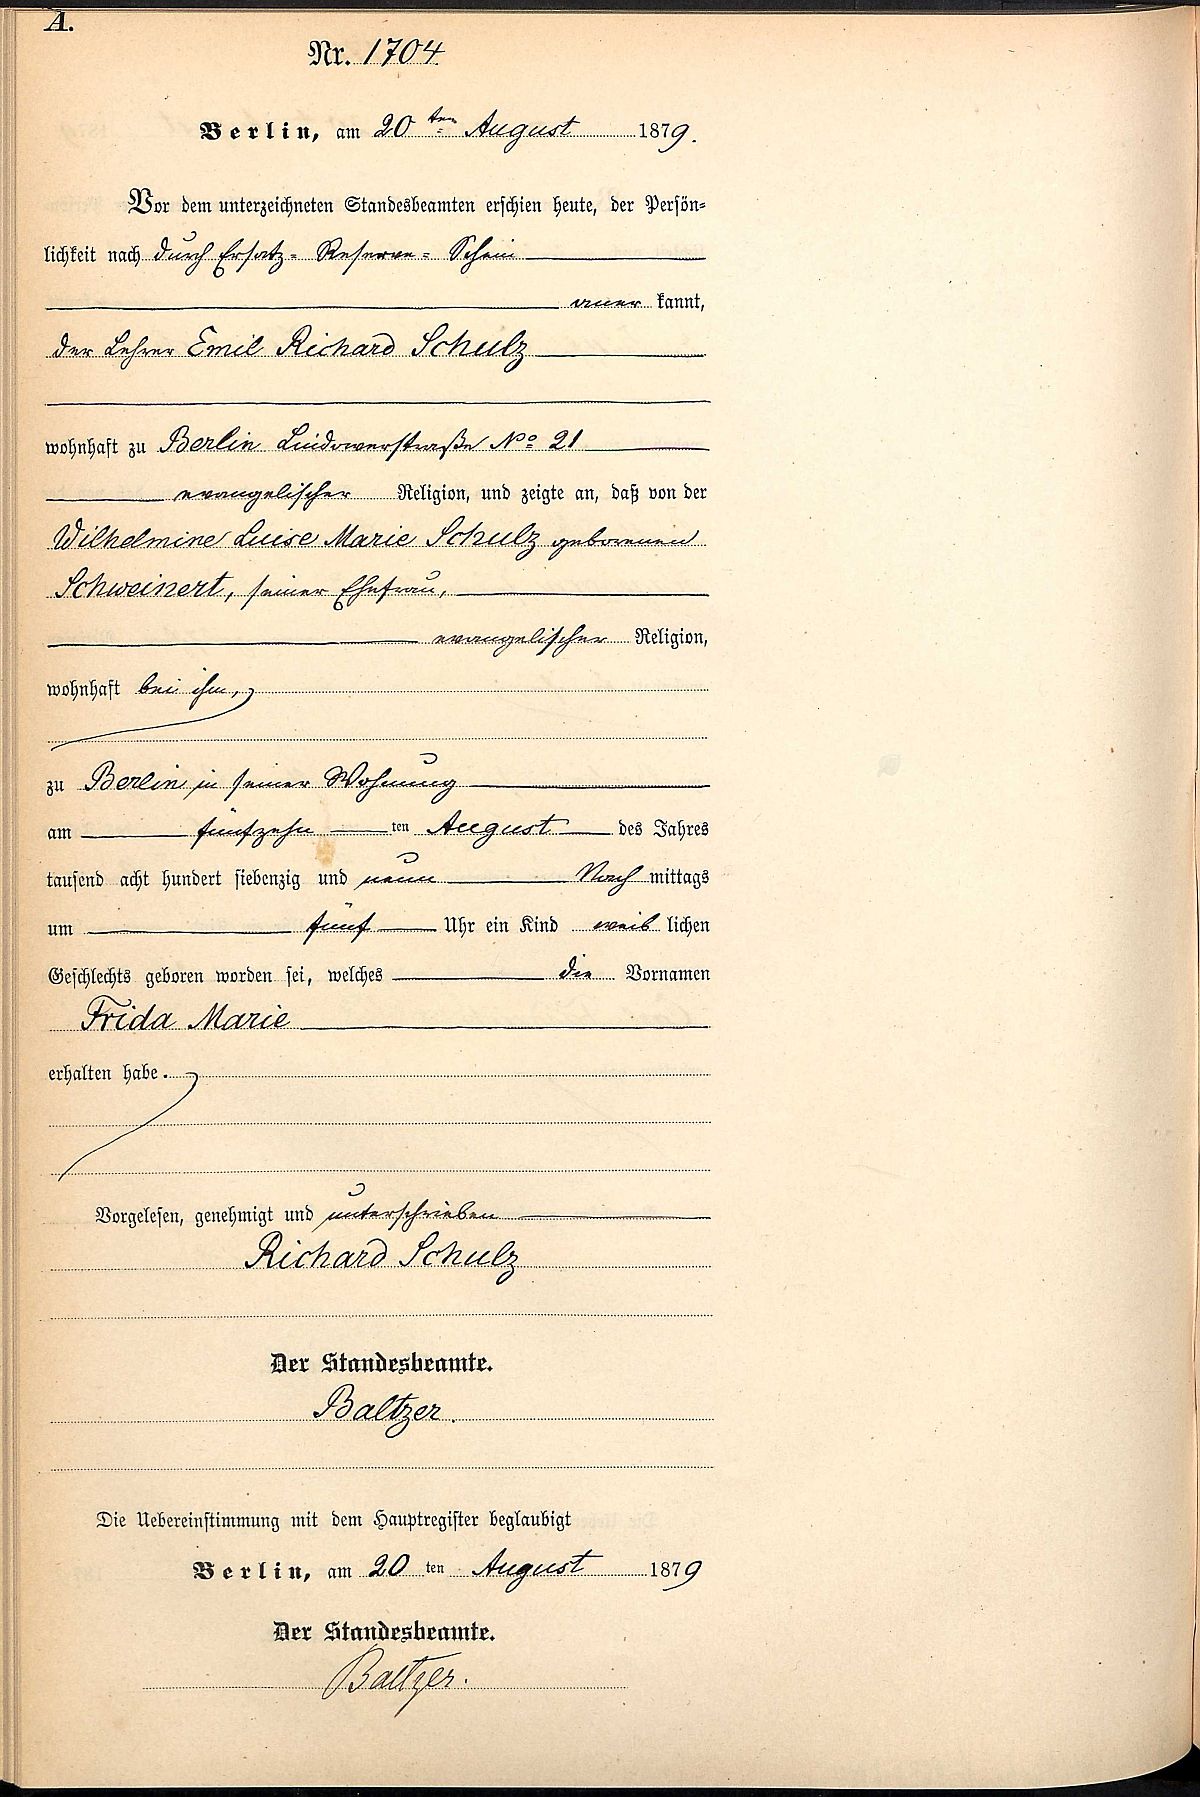 A.
Nr. 1704.
Berlin, am 20ten August 1879.
Vor dem unterzeichneten Standesbeamten erschien heute, der Persön-
lichkeit nach durch Ersatz-Reserve-Schein
aner kannt,
der Lehrer Emil Richard Schulz
wohnhaft zu Berlin Lindowerstraße No 21
evangelischer Religion, und zeigte an, daß von der
Wilhelmine Luise Marie Schulz geborenen
Schweinert, seiner Ehefrau,
evangelischer Religion,
wohnhaft bei ihm,
zu Berlin in seiner Wohnung
am fünfzehn ten August des Jahres
tausend acht hundert siebenzig und neun Nach mittags
um fünf Uhr ein Kind weib lichen
Geschlechts geboren worden sei, welches die Vornamen
Frida Marie
erhalten habe.
Vorgelesen, genehmigt und unterschrieben
Richard Schulz
Der Standesbeamte.
Baltzer.
Die Uebereinstimmung mit dem Hauptregister beglaubigt
Berlin, am 20 ten August 1879
Der Standesbeamte.
Baltzer.